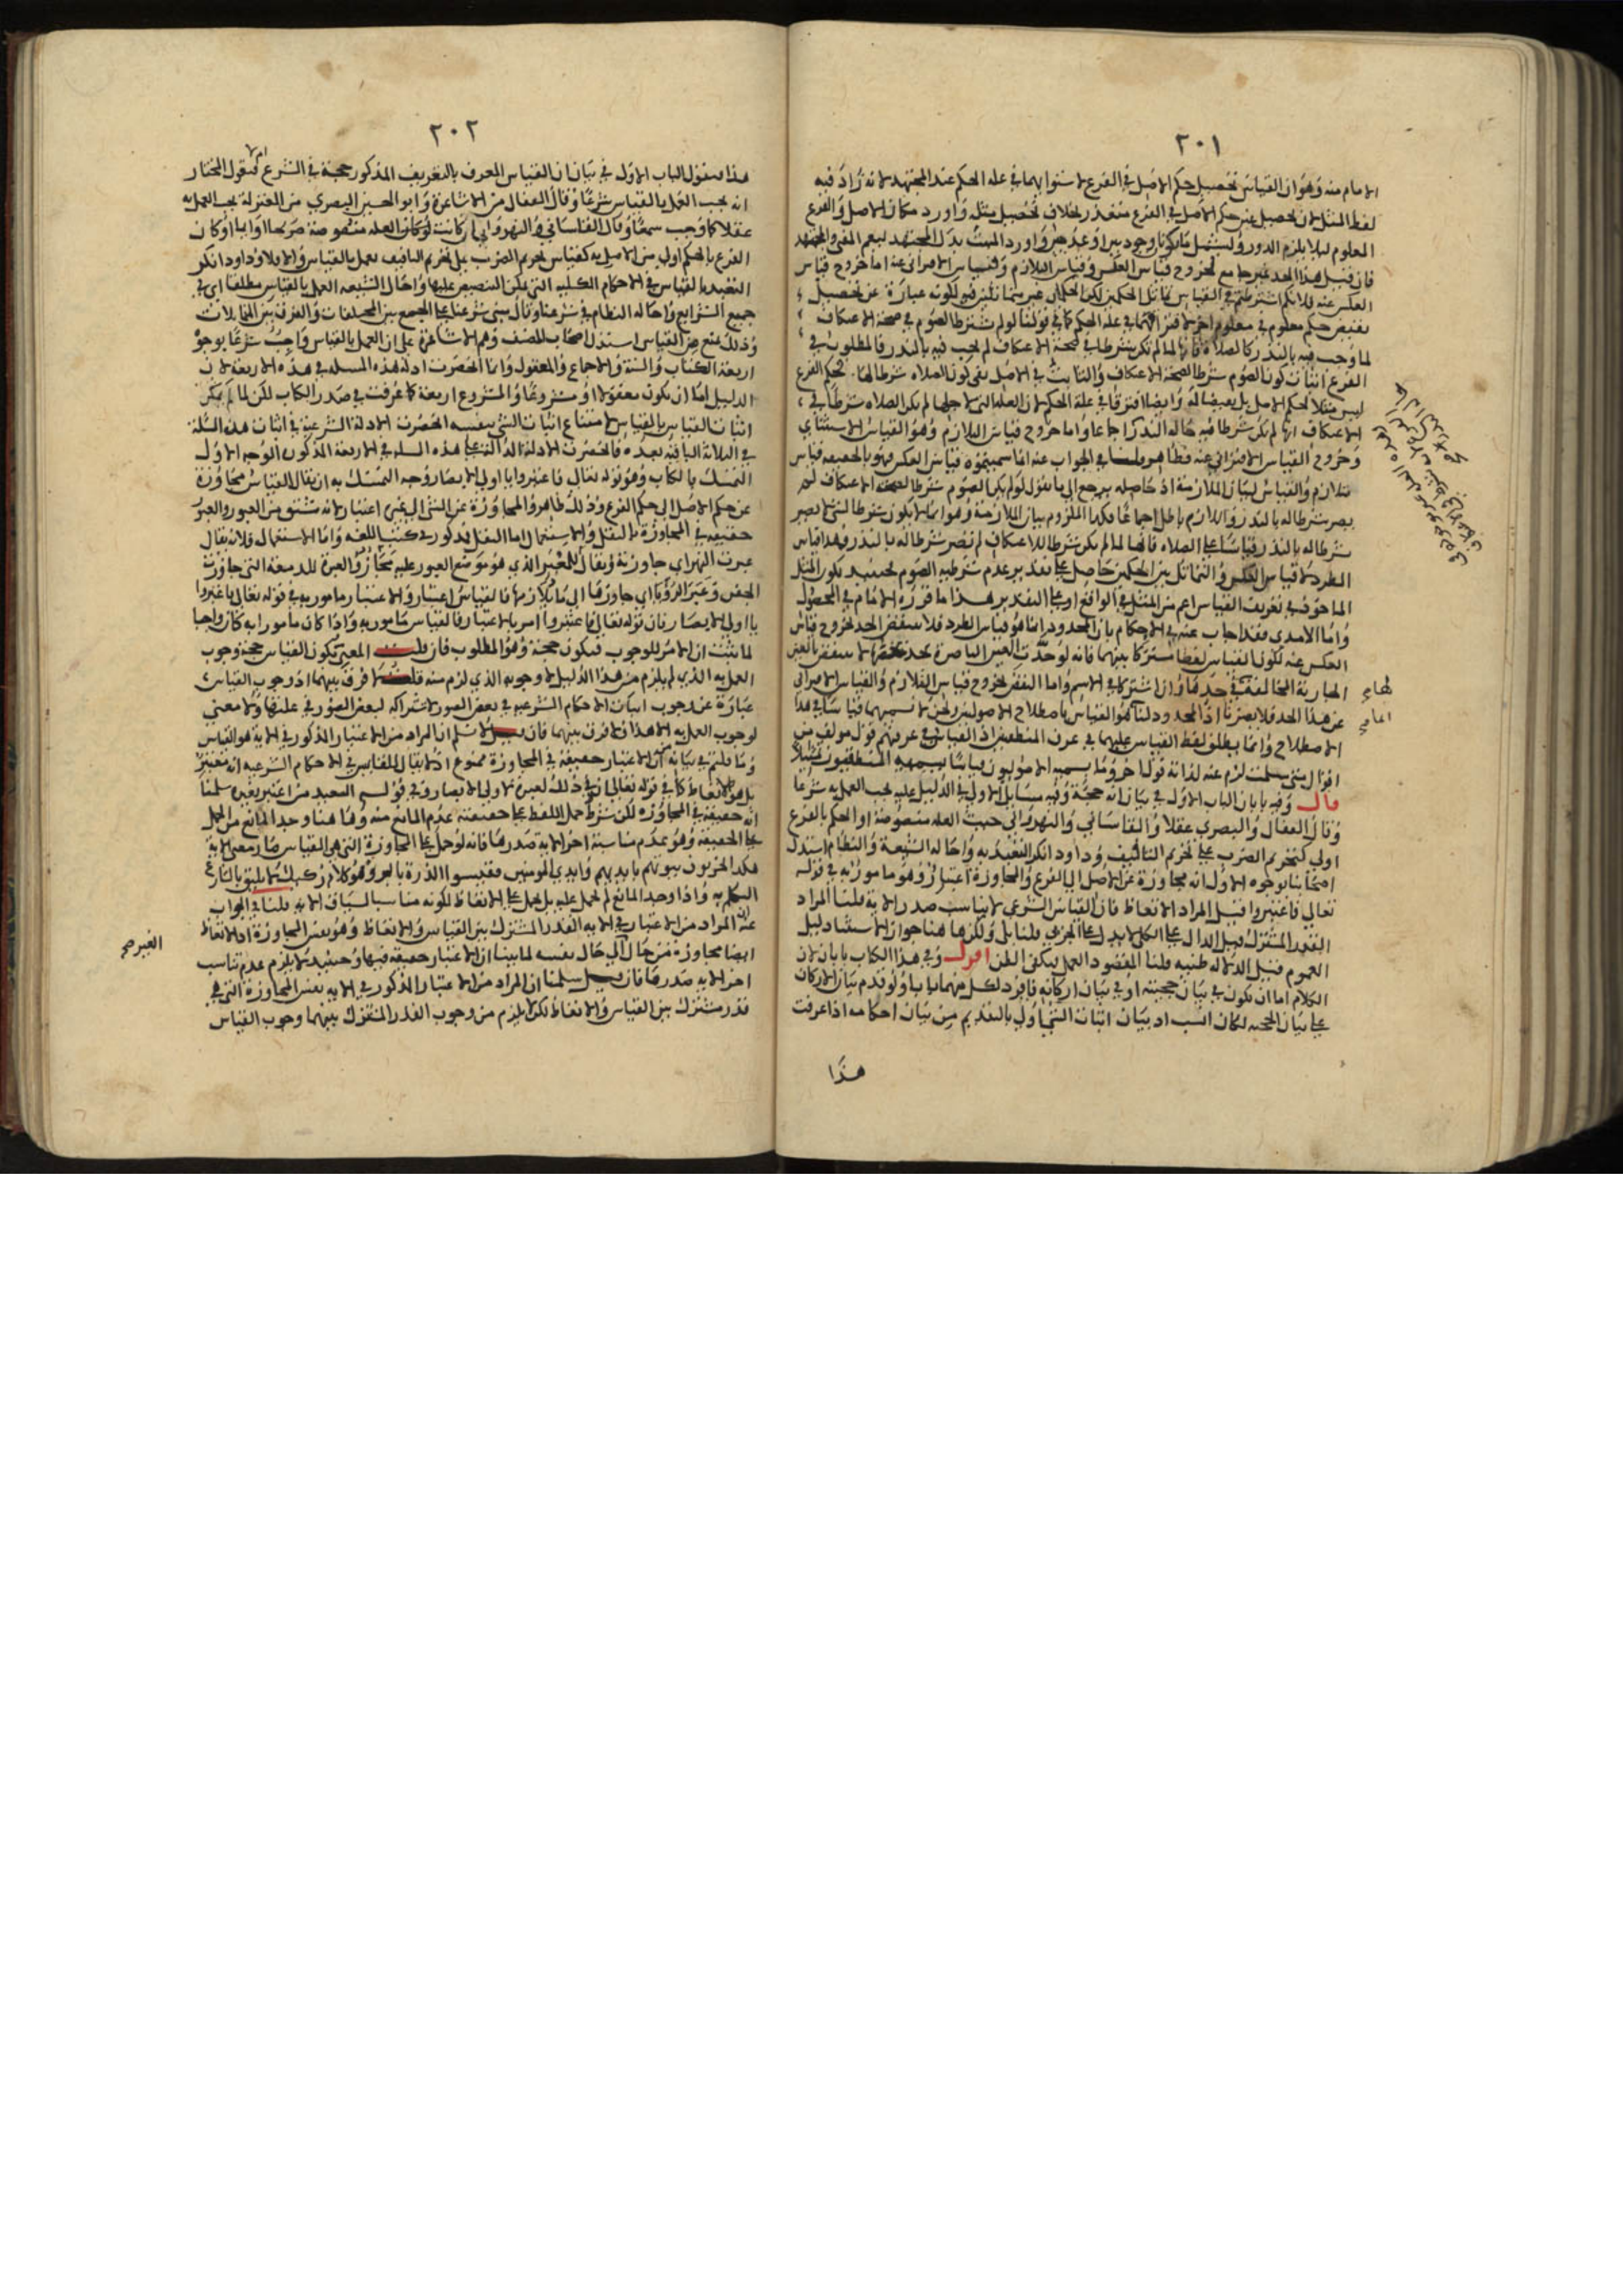 ٢٠١
الامام منه وهو ان القياس تحصيل حكم الاصل في الفرع لاستوايهما في علة الحكم عند المجتهد لانه زاد فيه
لفظ المثل لان تحصيل عين حكم الاصل في الفرع متعذر بخلاف تحصيل مثله واورد مكان الاصل والفرع
المعلوم ليلا يلزم الدور وليشمل بدل المجتهد ليعم
فان قيل هذا الحد غير جامع لخروج قياس العكس وقياس التلازم والقياس الاقتراني عنه اما خروج قياس
العكس عنه فلانكم اشترطتم في القياس تماثل الحكمين لكن الحكمان غير متماثلين فيه لكونه عبارة عن تحصيل
نقيض حكم معلوم في معلوم اخر لافتراقهما في علة الحكم كما في قولنا لو لم يشترط الصوم في صحة الاعتكاف
لما وجب فيه بالنذر كالصلاة فانها لما لم تكن شرطا في صحة الاعتكاف لم تجب فيه بالنذر فالمطلوب في
الفرع اثبات كون الصوم شرطا لصحة الاعتكاف والثابت في الاصل نفي كون الصلاه شرطا لها فحكم الفرع
ليس مثلا لحكم الاصل بل نقيضا له وايضا افترقا في علة الحكم لان العلة التي لاجلها لم تكن الصلاه شرطا في
الاعتكاف انها لم تكن شرطا فيه حاله النذر اجماعا واما خروج قياس التلازم وهو القياس الاستثنائي
وخروج القياس الاقتراني عنه فظاهر قلنا في الجواب عنه اما سميتموه قياس العكس فهو بالحقيقه قياس
تلازم والقياس لبيان الملازمة اذ حاصله يرجع الى ما نقول لو لم يكن الصوم شرطا لصحة الاعتكاف لم
يصر شرطا له بالنذر واللازم باطل اجماعا فكذا الملزوم بيان الملازمة وهو ان ما لا يكون شرطا لشي لا يصير
شرطا له بالنذر قياسا على الصلاه فانها لما لم تكن شرطا للاعتكاف لم تصر شرطا له بالنذر وهذا قياس
الطرد لا قياس العكس والتماثل بين الحكمين حاصل على تقدير عدم شرطيه الصوم فحينيذ يكون المثل
الماخوذ في تعريف القياس اعم من المثل في الواقع او على التقدير هذا ما قرره الامام في المحصول
واما الامدي فقد اجاب عنه في الاحكام بان المحدود انما هو قياس الطرد فلا ينتقض الحد بخروج قياس
العكس عنه لكون القياس لفظا مشتركا بينهما فانه لو حدت العين الباصرة بحد يخصها لا ينتقض بالعين
الجارية المخالفة في حدها وان اشتركا في الاسم واما النقض بخروج قياس التلازم والقياس الاقتراني
عن هذا الحد فلا يضرنا اذ المحدود لنا هو القياس باصطلاح الاصوليين ونحن لا نسميهما قياسا في هذا
الاصطلاح وانما يطلق لفظ القياس عليهما في عرف المنطقيين اذ القياس في عرفهم قول مولف من
اقوال متى سلمت لزم عنه لذاته قول اخر وما يسميه الاصوليون قياسا يسميه المنطقيون تمثيلا
قال وفيه بابان الباب الاول في بيان انه حجة وفيه مسايل الاولى في الدليل عليه يجب العمل به شرعا
وقال القفال والبصري عقلا والقاساني والنهرواني حيث العله منصوصة او الحكم بالفرع
اولى كتحريم الضرب على تحريم التافيف وداود انكر التعبد به واحاله الشيعة والنظام استدل
اصحابنا بوجوه الاول انه مجاوزة عن الاصل الى الفرع والمجاوزة اعتبار وهو مامور به في قوله
تعالى فاعتبروا قيل المراد الاتعاظ فان القياس الشرعي لا يناسب صدر الاية قلنا المراد
القدر المشترك قيل الدال على الكلي لا يدل على الجزي قلنا بلى ولكن هاهنا جواز الاستثنا دليل
العموم قيل الدلالة ظنية قلنا المقصود العمل فيكفي الظن اقول وفي هذا الكتاب بابان لان
الكلام اما ان يكون في بيان حجيته او في بيان اركانه فافرد لكل منهما بابا ولو قدم بيان الاركان
على بيان الحجيه لكان انسب اذ بيان اثبات الشي اولى بالتقديم من بيان احكامه اذا عرفت
هذا
٢٠٢
هذا فنقول الباب الاول في بيان ان القياس المعرف بالتعريف المذكور حجة في الشرع فنقول المختار
انه يجب العمل بالقياس شرعا وقال القفال من الاشاعرة وابو الحسين البصري من المعتزلة يجب العمل به
عقلا كما وجب سمعا وقال القاساني والنهرواني ان كانت العله منصوصة صريحا او ايما او كان
الفرع بالحكم اولى من الاصل به كقياس تحريم الضرب على تحريم التافيف يعمل بالقياس والا فلا وداود انكر
التعبد بالقياس في الاحكام الكلية التي يمكن التنصيص عليها واحال الشيعه العمل بالقياس مطلقا اي في
جميع الشرايع واحاله النظام في شرعنا وقال مبنى شرعنا على الجمع بين المختلفات والفرق بين المتماثلات
وذلك يمنع من القياس استدل اصحاب المصنف وهم الاشاعرة على ان العمل بالقياس واجب شرعا بوجوه
اربعة الكتاب والسنة والاجماع والمعقول وانما انحصرت ادلة هذه المسله في هذه الاربعه لان
الدليل اما ان يكون معقولا او مشروعا والمشروع اربعة كما عرفت في صدر الكتاب لكن لما لم يمكن
اثبات القياس بالقياس لامتناع اثبات الشي بنفسه انحصرت الادلة الشرعية في اثبات هذه المسلة
في الثلاثة الباقية بعده فانحصرت الادلة الدالة على هذه المسله في الاربعة المذكوره الوجه الاول
التمسك بالكتاب وهو قوله تعالى فاعتبروا يا اولي الابصار وجه التمسك به ان يقال القياس مجاوزة
عن حكم الاصل الى حكم الفرع وذلك ظاهر والمجاوزة عن الشي الى غيره اعتبار لانه مشتق من العبور والعبور
حقيقه في المجاوزة بالنقل والاستعمال اما النقل فمذكور في كتب اللغه واما الاستعمال فلانه يقال
عبرت النهر اي جاوزته ويقال المعبر الذي هو موضع العبور عليه مجاز والعبرة للدمعة التي جاوزت
الجفن وعبر الرؤيا اي جاوزها الى ما يلازمها فالقياس اعتبار والاعتبار مامور به في قوله تعالى فاعتبروا
يا اولي الابصار فان قوله تعالى فاعتبروا امر بالاعتبار فالقياس مامور به واذا كان مامورا به كان واجبا
لما يثبت ان الامر للوجوب فيكون حجة وهو المطلوب فان قلت المعني بكون القياس حجة وجوب
العمل به الذي لم يلزم من هذا الدليل لا وجوبه الذي لزم منه قلت لا فرق بينهما اذ وجوب القياس
عبارة عن وجوب اثبات الاحكام الشرعيه في بعض الصور لاشتراكه لبعض الصور في علتها ولا معنى
لوجوب العمل به الا هذا فلا فرق بينهما فان قيل لا نسلم ان المراد من الاعتبار المذكور في الاية هو القياس
وما قلتم في بيانه من ان الاعتبار حقيقة في المجاوزة ممنوع اذ لا يقال للقايس في الاحكام الشرعيه انه معتبر
بل هو الاتعاظ كما في قوله تعالى ان في ذلك لعبرة لاولي الابصار وفي قولهم السعيد من اعتبر بغيره سلمنا
انه حقيقة في المجاوزه لكن شرط حمل اللفظ على حقيقته عدم المانع منه وهاهنا وجد المانع من الحمل
على الحقيقة وهو عدم مناسبة اخر الاية صدرها فانه لو حمل على المجاوزة التي هي القياس صار معنى الاية
هكذا يخربون بيوتهم بايديهم وايدي المومنين فقيسوا الذرة بالبر وهو كلام ركيك لا يليق بالشارع
التكلم به واذا وجد المانع لم يحمل عليه بل يحمل على الاتعاظ لكونه مناسبا لسياق الاية قلنا في الجواب
عنه المراد من الاعتبار في الاية القدر المشترك بين القياس والاتعاظ وهو نفس المجاوزة اذ الاتعاظ
ايضا مجاوزة من حال الى حال نفسه لما بينا ان الاعتبار حقيقه فيها وحينيذ لا يلزم عدم تناسب
اخر الاية صدرها فان قيل سلمنا ان المراد من الاعتبار المذكور في الاية نفس المجاوزة التي هي
قدر مشترك بين القياس والاتعاظ لكن لا يلزم من وجوب القدر المشترك بينهما وجوب القياس
الغير صح